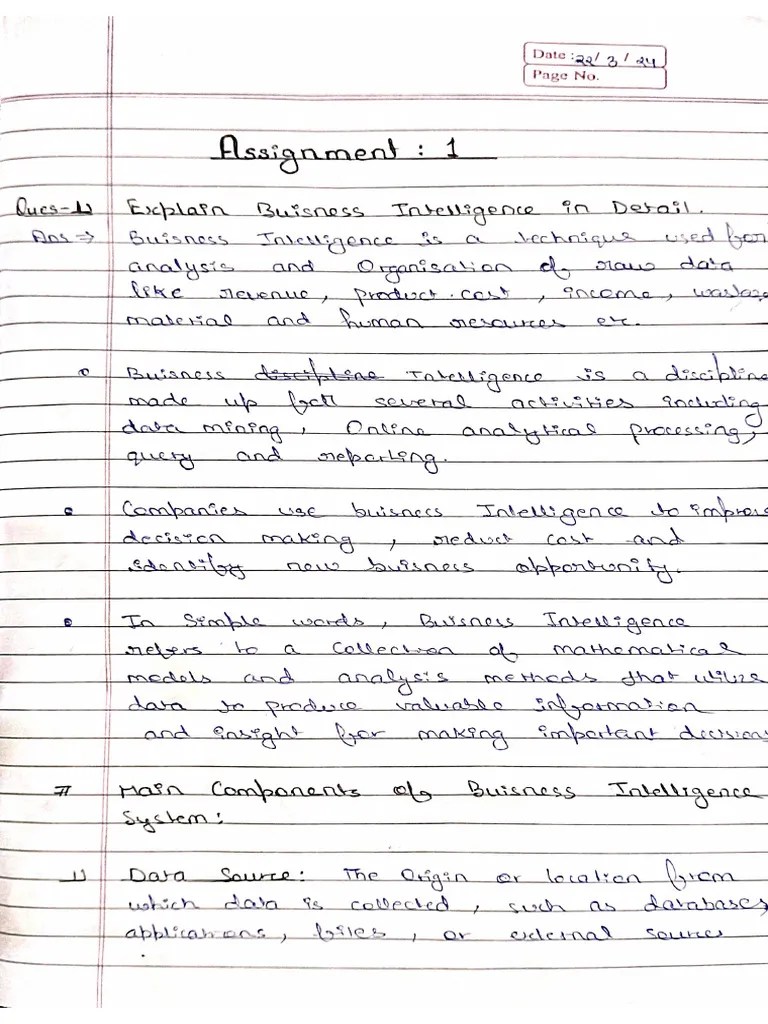 Date : 22/3/24
Page No.
Assignment : 1
Ques-1) Explain Buisness Intelligence in Detail.
Ans ⇒ Buisness Intelligence is a technique used for
analysis and Organisation of raw data
like revenue, product cost, income, wastage
material and human resources etc.
Buisness discipline Intelligence is a discipline
made up for several activities including
data mining, Online analytical processing,
query and reporting.
Companies use buisness Intelligence to improve
decision making, reduct cost and
identify new buisness opportunity.
In Simple words, Buisness Intelligence
refers to a Collection of mathematical
models and analysis methods that utilize
data to produce valuable information
and insight for making important decisions
# Main Components of Buisness Intelligence
System:
1) Data Source: The Origin or location from
which data is collected, such as databases,
applications, files, or external source